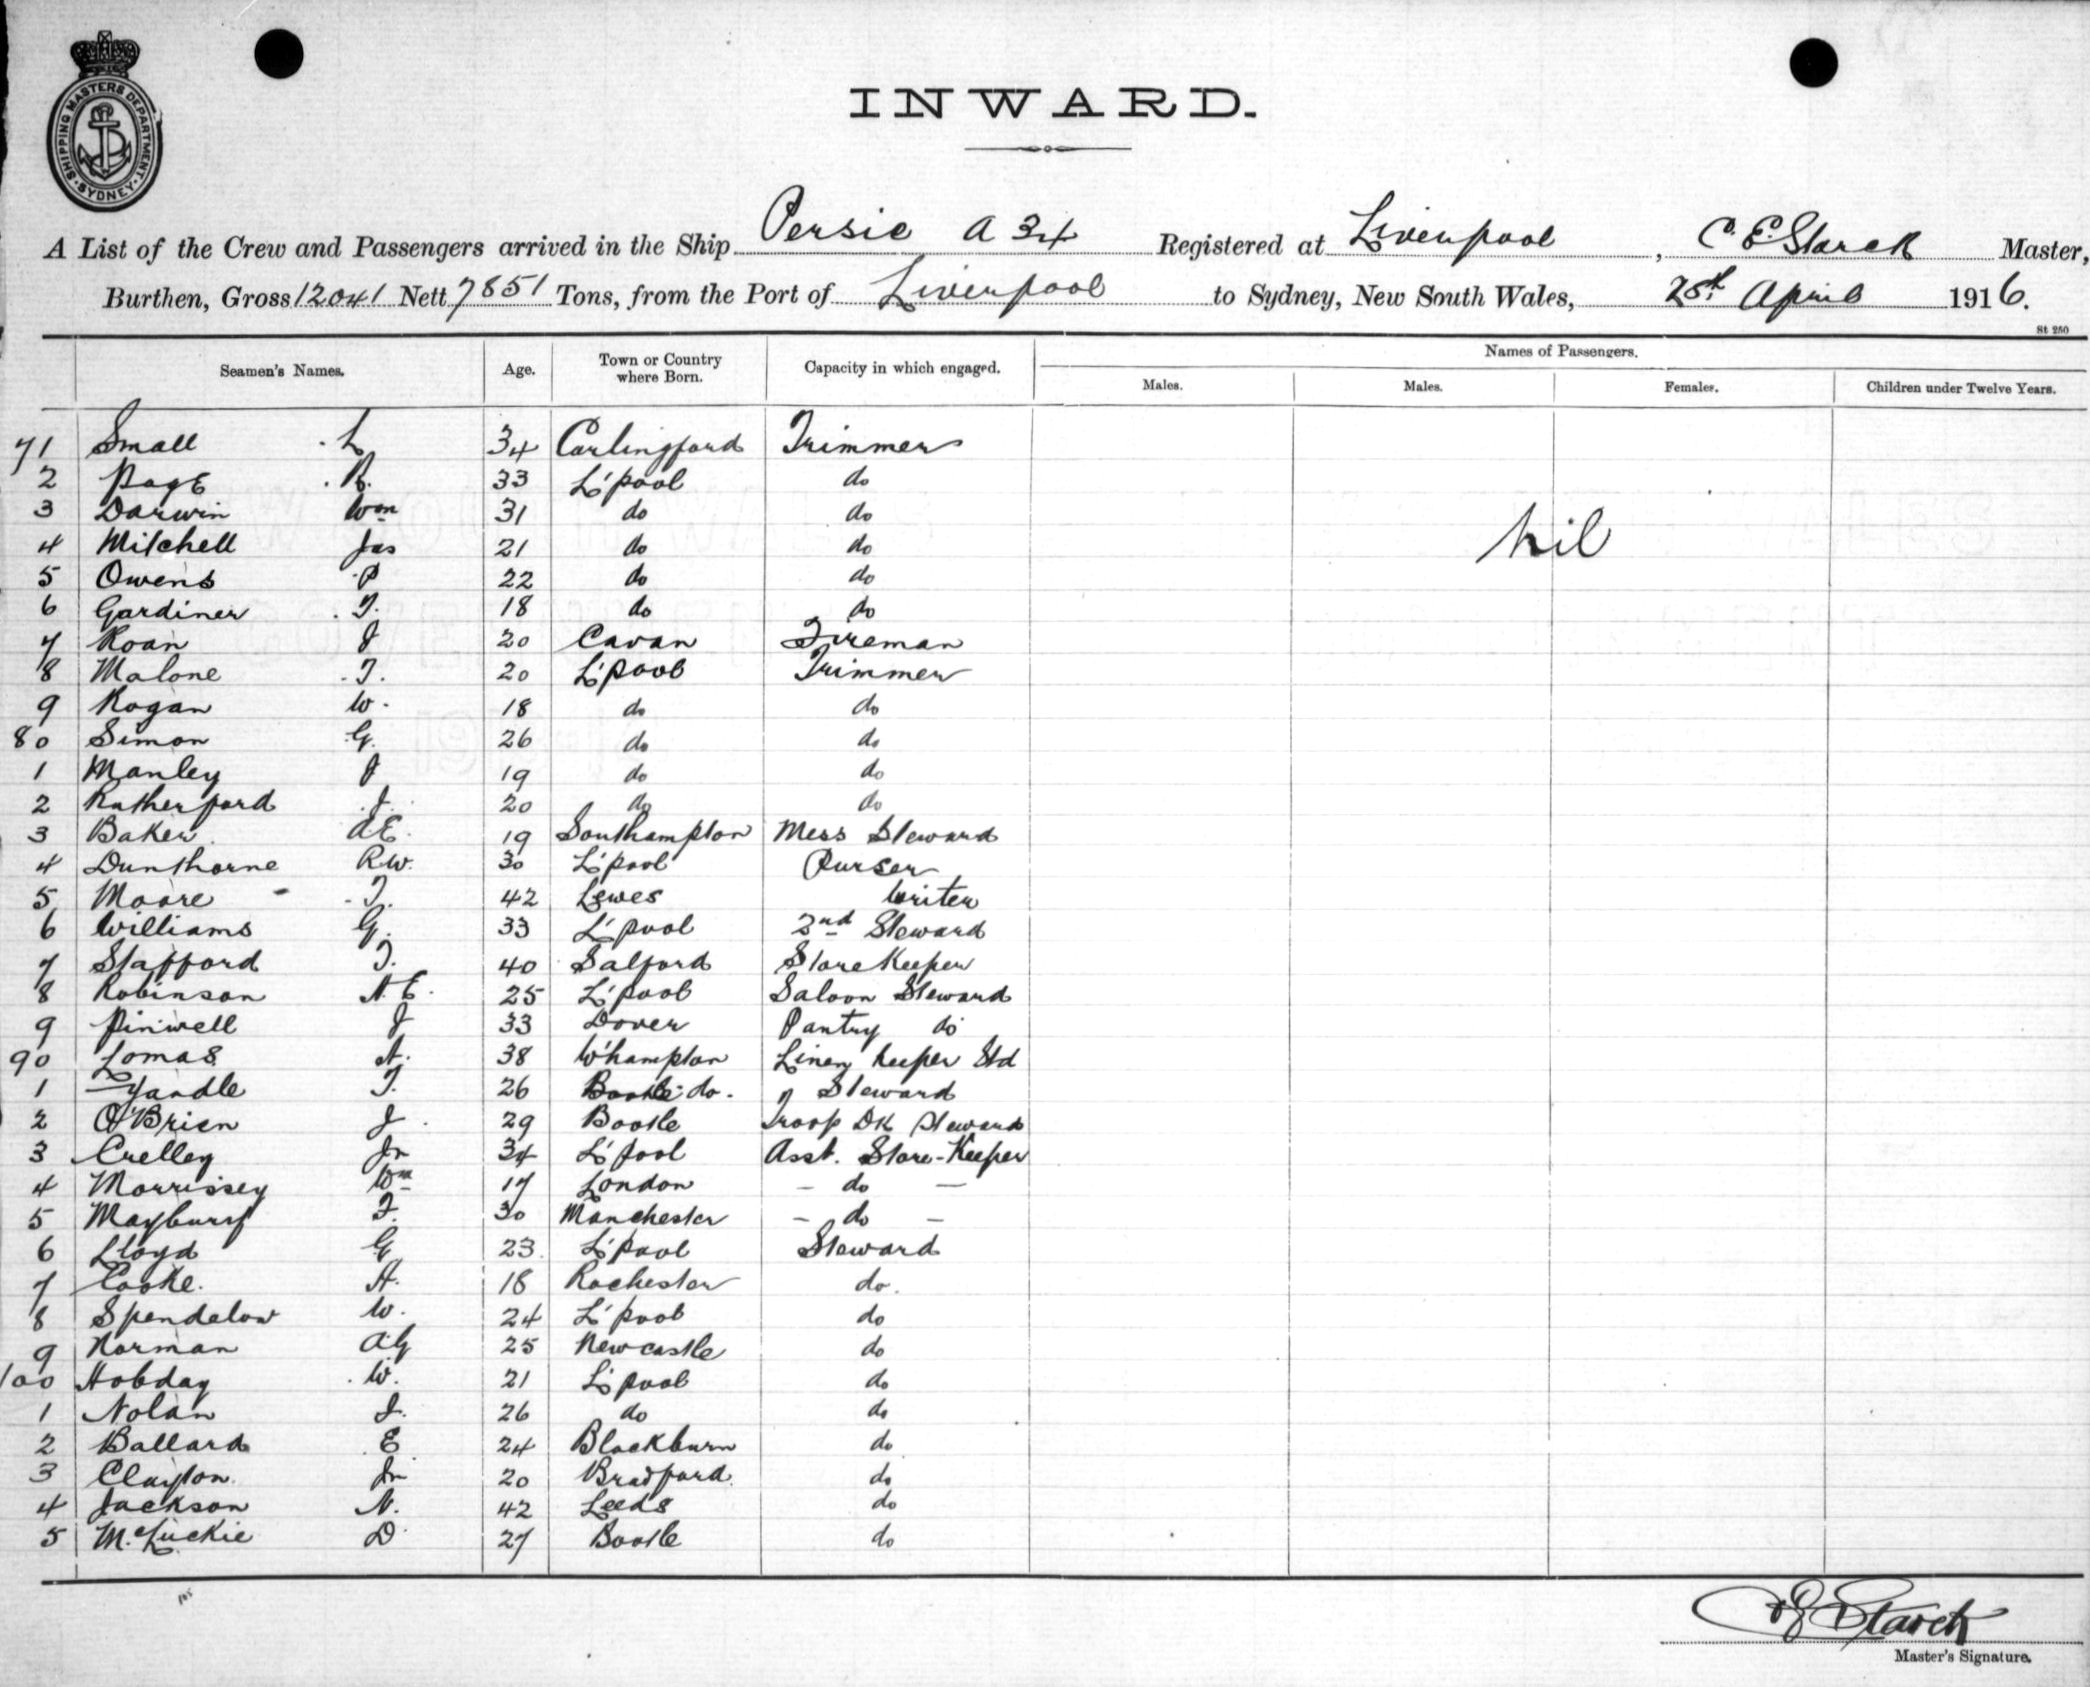 SHIPPING MASTERS DEPARTMENT · SYDNEY ·
INWARD.
A List of the Crew and Passengers arrived in the Ship Persic A 34 Registered at Liverpool, C. E. Starck Master,
Burthen, Gross 12041 Nett 7851 Tons, from the Port of Liverpool to Sydney, New South Wales, 28th April 1916.
St 250
Seamen's Names. Age. Town or Country where Born. Capacity in which engaged. Names of Passengers.
Males. Males. Females. Children under Twelve Years.
71 Small L 34 Carlingford Trimmer
2 Page R. 33 L'pool do
3 Darwin Wm 31 do do
nil
4 Mitchell Jas 21 do do
5 Owens P 22 do do
6 Gardiner T. 18 do do
7 Roan J 20 Cavan Fireman
8 Malone T. 20 L'pool Trimmer
9 Rogan W. 18 do do
80 Simon G. 26 do do
1 Manley J 19 do do
2 Rutherford J. 20 do do
3 Baker A.E. 19 Southampton Mess Steward
4 Dunthorne R.W. 30 L'pool Purser
5 Moore - T. 42 Lewes Writer
6 Williams G. 33 L'pool 2nd Steward
7 Stafford T. 40 Salford StoreKeeper
8 Robinson A.E. 25 L'pool Saloon Steward
9 Pinwell J 33 Dover Pantry do
90 Lomas A. 38 W'hampton Linen keeper Std
1 Yandle T. 26 Bootle do. Steward
2 O'Brien J. 29 Bootle Troop Dk Steward
3 Crelley Jn 34 L'pool Asst. Store-Keeper
4 Morrissey Wm 17 London - do -
5 Maybury F. 30 Manchester - do -
6 Lloyd G 23 L'pool Steward
7 Cooke. A. 18 Rochester do.
8 Spendelow W. 24 L'pool do
9 Norman A.G 25 Newcastle do
100 Hobday W. 21 L'pool do
1 Nolan J. 26 do do
2 Ballard E 24 Blackburn do
3 Clayton Jn 20 Bradford do
4 Jackson N. 42 Leeds do
5 McLuckie D. 27 Bootle do
105
C E Starck
Master's Signature.